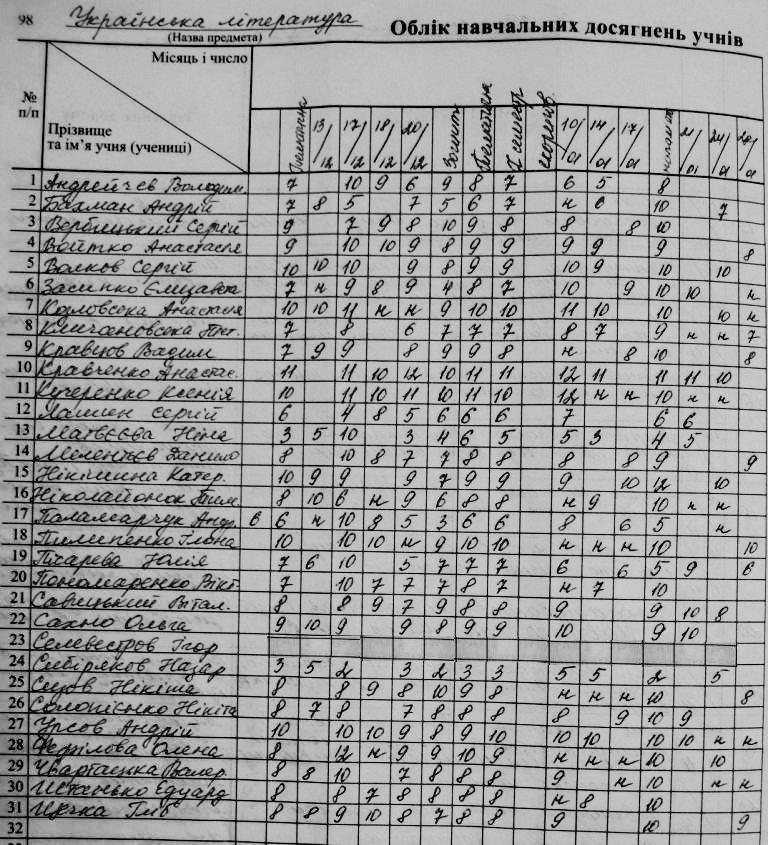 98 Українська література Облік навчальних досягнень учнів
(Назва предмета)
Місяць і число
№ п/п
Прізвище
та ім'я учня (учениці)
Тематична 13/12 17/12 18/12 20/12 Зошит Тематична І семестр 10/01 14/01 17/01 21/01 24/01 28/01
1 Андрейчев Володим. 7 10 9 6 9 8 7 6 5 8
2 Бахман Андрій 7 8 5 7 5 6 7 н 6 10 7
3 Вербицький Сергій 9 7 9 8 10 9 8 8 8 10
4 Войтко Анастасія 9 10 10 9 8 9 9 9 9 9 8
5 Волков Сергій 10 10 10 9 8 9 9 10 9 10 10
6 Засинко Єлизавета 7 н 9 8 9 4 8 7 10 9 10 10 н
7 Козловська Анастасія 10 10 11 н н 9 10 10 11 10 10 10 н
8 7 8 6 7 7 7 8 7 9 н н 7
9 Кравцов Вадим 7 9 9 8 9 9 8 н 8 10 8
10 Кравченко Анастас. 11 11 10 12 10 11 11 12 11 11 11 10
11 Кучеренко Ксенія 10 11 10 11 10 11 10 12 н н 10 н н
12 Сергій 6 4 8 5 6 6 6 7 6 6
13 Матвєєва Ніна 3 5 10 3 4 6 5 5 3 4 5
14 Мелентьєв Данило 8 10 8 7 7 8 8 8 8 9 9
15 Нікішина Катер. 10 9 9 9 7 9 9 9 10 12 10
16 Ніколайонок 8 10 6 н 9 6 8 8 н 9 10 н н
17 Паламарчук Андр. 6 6 н 10 8 5 3 6 6 8 6 5 н
18 Пилипенко Ілона 10 10 10 н 9 10 10 н н н 10 10
19 Пісарева Юлія 7 6 10 5 7 7 7 6 6 5 9 6
20 Пономаренко Вікт. 7 10 7 7 7 8 7 н 7 10
21 Савицький Вітал. 8 8 9 7 9 8 8 9 9 10 8
22 Сахно Ольга 9 10 9 9 8 9 9 10 9 10
23 Селевестров Ігор
24 Сибіряков Назар 3 5 2 3 2 3 3 5 5 2 5
25 Сизов Нікіта 8 8 9 8 10 9 8 н н н 10 8
26 Солопієнко Нікіта 8 7 8 7 8 8 8 8 9 10 9
27 Урсов Андрій 10 10 10 9 8 9 10 10 10 10 10 н н
28 Олена 8 12 н 9 9 10 9 н н н 10 10
29 Чвартацька Валер. 8 8 10 7 8 8 8 9 н 10 н н
30 Едуард 8 8 7 8 8 8 8 н 8 10
31 8 8 9 10 8 7 8 8 9 10 9
32